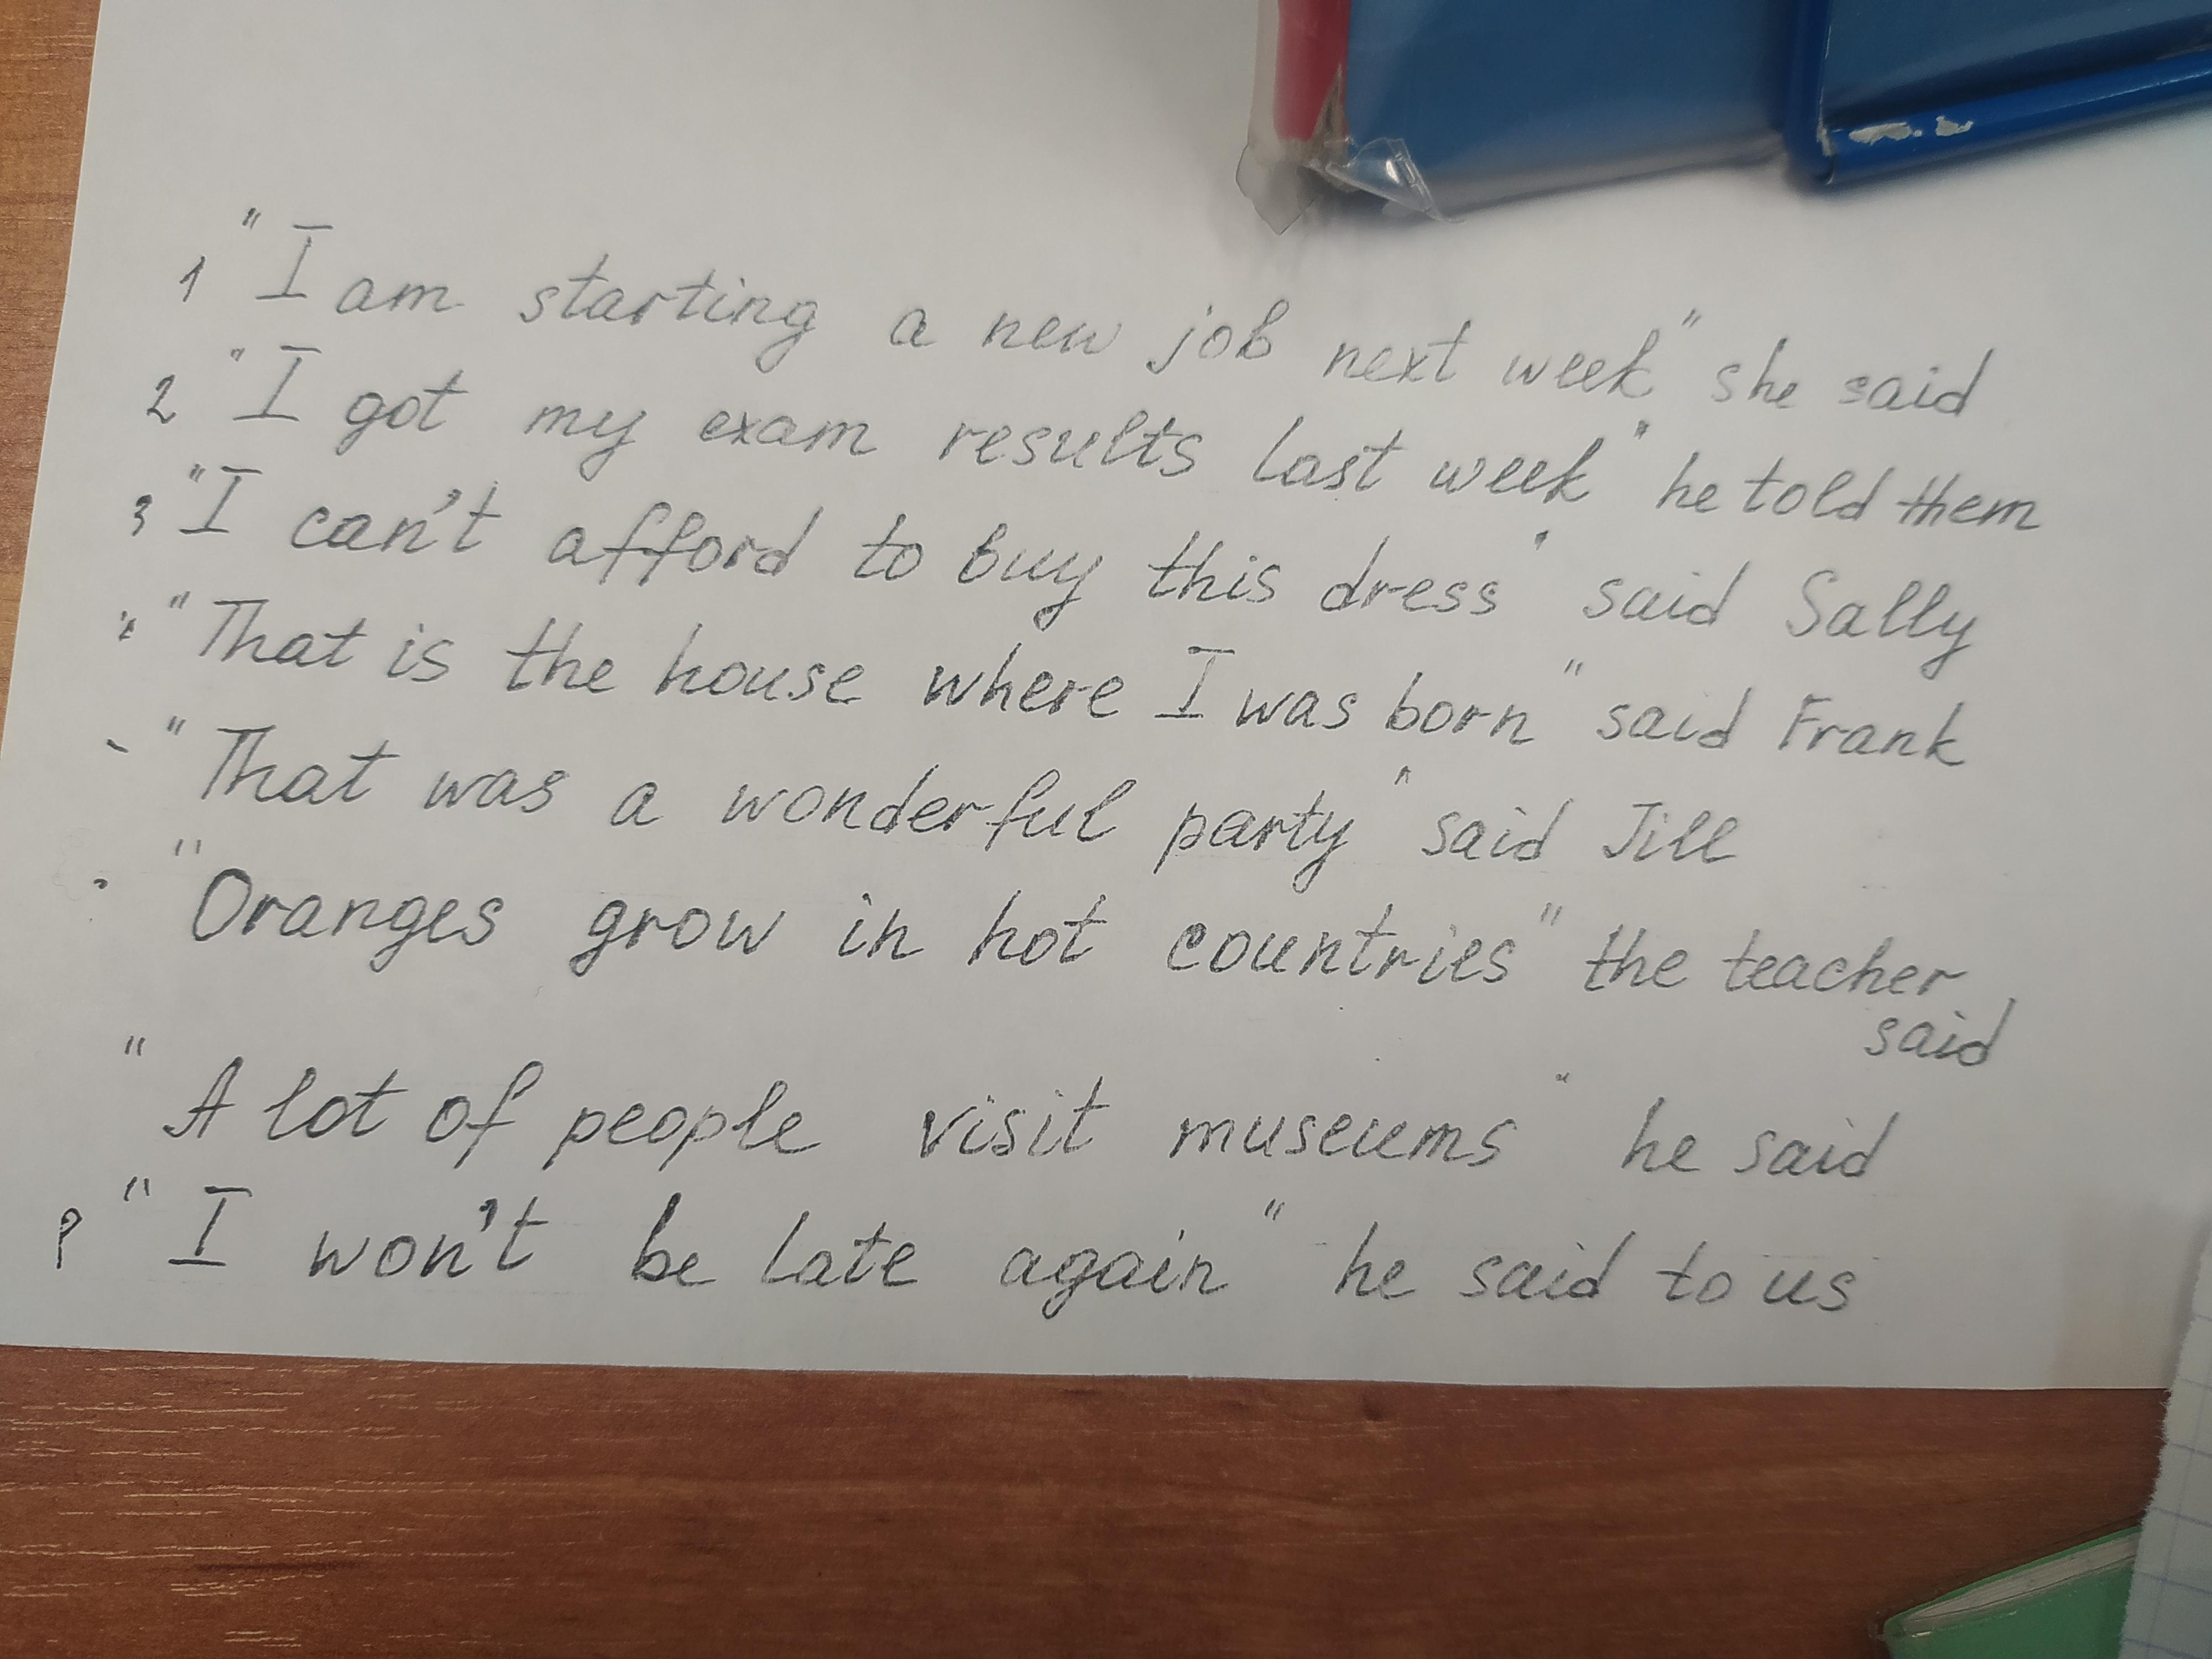 1 "I am starting a new job next week" she said
2 "I got my exam results last week" he told them
3 "I can't afford to buy this dress" said Sally
"That is the house where I was born" said Frank
"That was a wonderful party" said Jill
"Oranges grow in hot countries" the teacher
said
"A lot of people visit museums" he said
"I won't be late again" he said to us